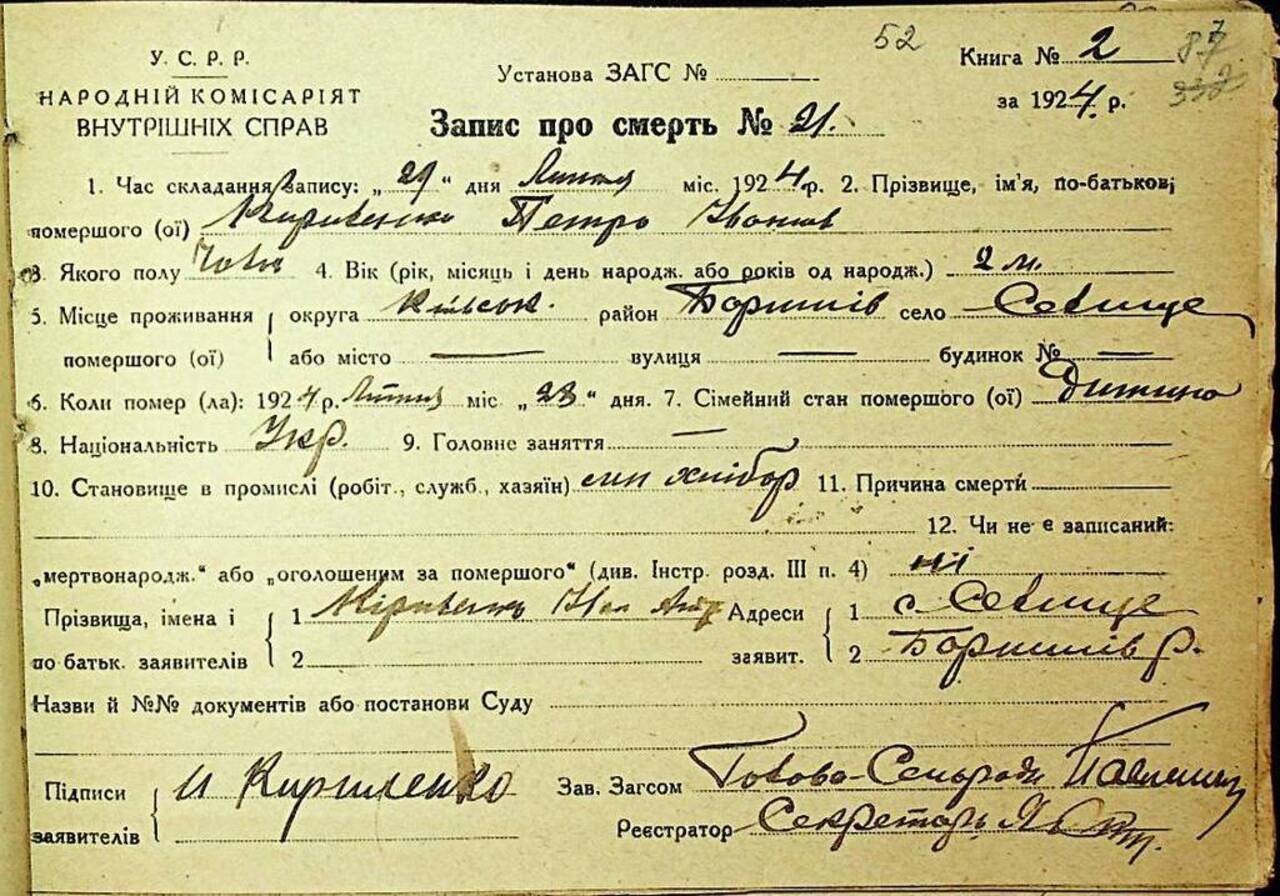 52
Книга № 2
87
332
У. С. Р. Р.
НАРОДНІЙ КОМІСАРІЯТ
ВНУТРІШНІХ СПРАВ
Установа ЗАГС №
за 1924 р.
Запис про смерть № 21.
1. Час складання запису: „29“ дня Липня міс. 1924 р. 2. Прізвище, ім'я, по-батькові
помершого (ої) Петро Іванов
3. Якого полу Чолов 4. Вік (рік, місяць і день народж. або років од народж.) 2 м.
5. Місце проживання округа Київськ. район село
помершого (ої) або місто — вулиця — будинок № —
6. Коли помер (ла): 1924 р. Липня міс „23“ дня. 7. Сімейний стан помершого (ої) Дитина
8. Національність Укр. 9. Головне заняття —
10. Становище в промислі (робіт., служб., хазяїн) син хлібор 11. Причина смерти
12. Чи не є записаний:
„мертвонародж.“ або „оголошеним за помершого“ (див. Інстр. розд. III п. 4) ні
Прізвища, імена і по батьк. заявителів 1 Іван Андр Адреси заявит. 1 с.
2 2 р.
Назви й №№ документів або постанови Суду
Підписи заявителів И Кириленко Зав. Загсом Голова Сельради
Реєстратор Секретарь